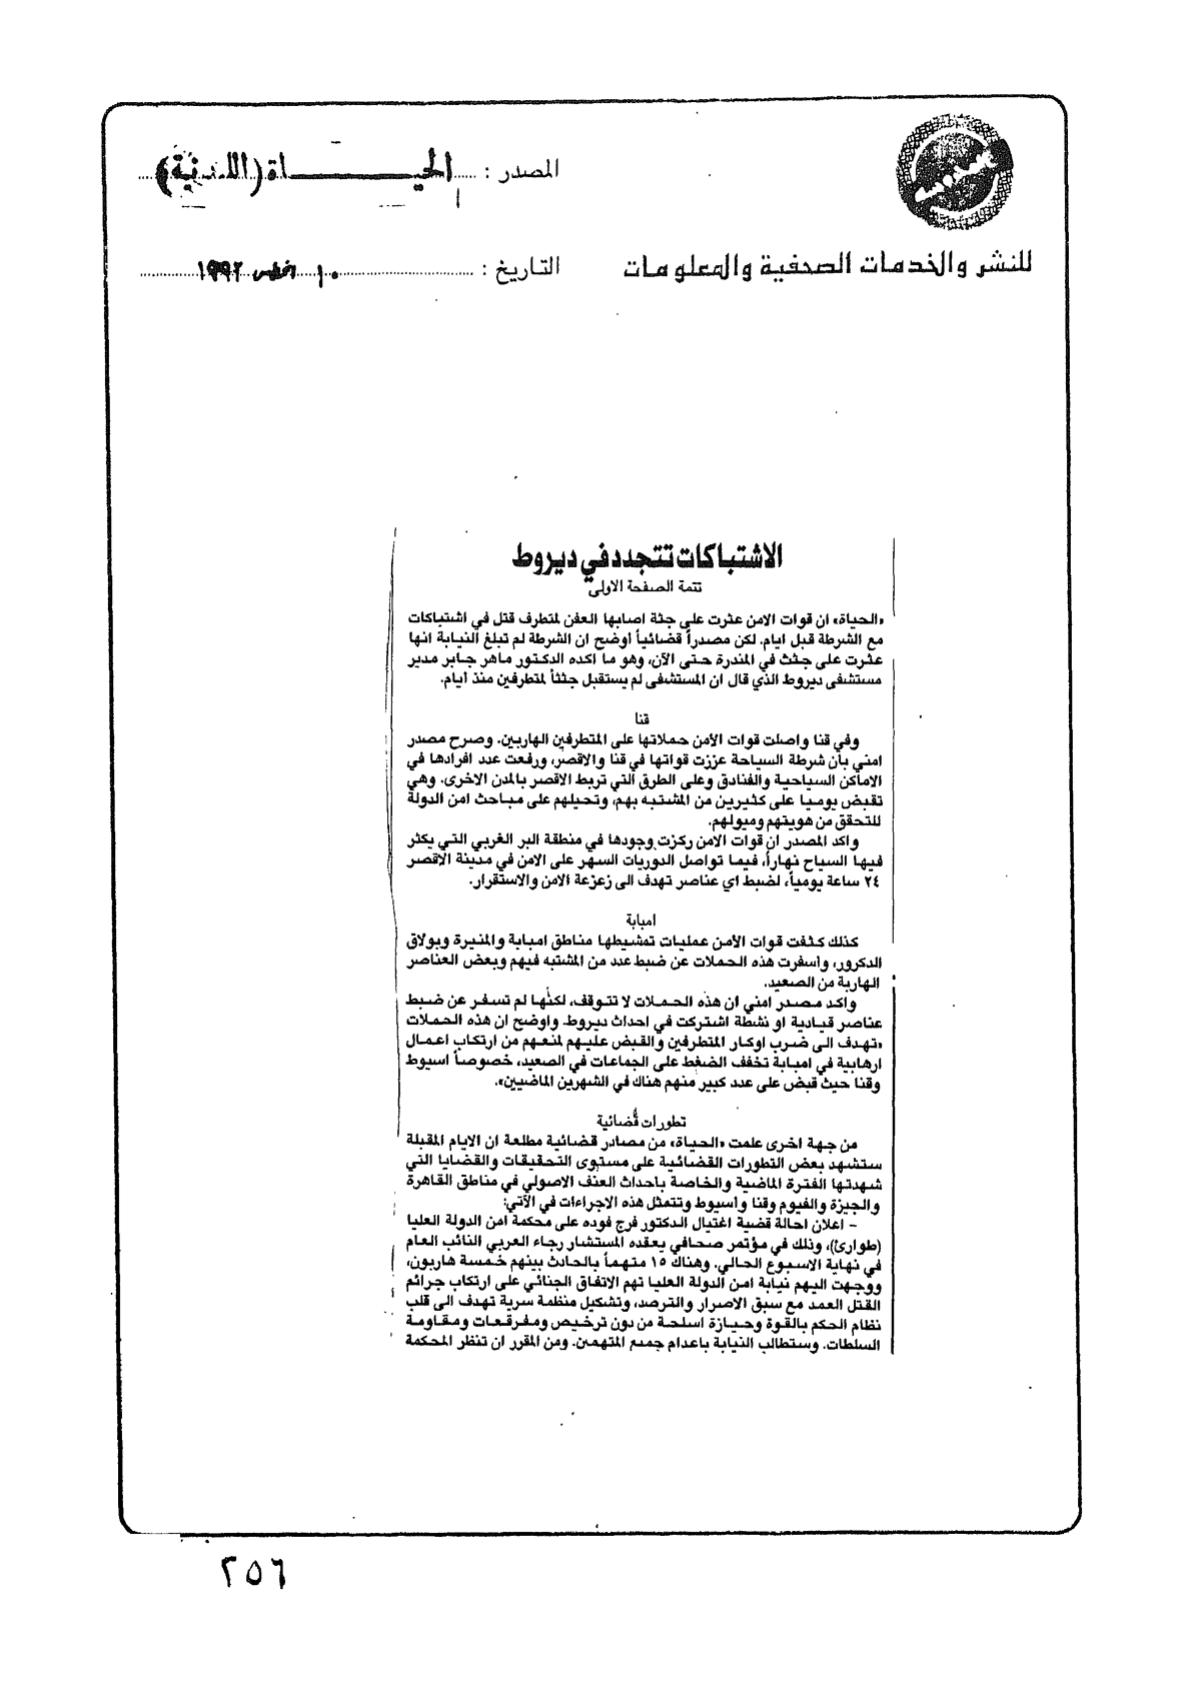 المصدر : الحيـــــاة (اللندنية)
للنشر والخدمات الصحفية والمعلومات
التاريخ : ١٠ اغسطس ١٩٩٢
الاشتباكات تتجدد في ديروط
تتمة الصفحة الاولى
«الحياة» ان قوات الامن عثرت على جثة اصابها العفن لمتطرف قتل في اشتباكات
مع الشرطة قبل ايام. لكن مصدراً قضائياً اوضح ان الشرطة لم تبلغ النيابة انها
عثرت على جثث في المندرة حتى الآن، وهو ما اكده الدكتور ماهر جابر مدير
مستشفى ديروط الذي قال ان المستشفى لم يستقبل جثثاً لمتطرفين منذ ايام.
قنا
وفي قنا واصلت قوات الأمن حملاتها على المتطرفين الهاربين. وصرح مصدر
امني بأن شرطة السياحة عززت قواتها في قنا والاقصر، ورفعت عدد افرادها في
الاماكن السياحية والفنادق وعلى الطرق التي تربط الاقصر بالمدن الاخرى. وهي
تقبض يوميا على كثيرين من المشتبه بهم، وتحيلهم على مباحث امن الدولة
للتحقق من هويتهم وميولهم.
واكد المصدر ان قوات الامن ركزت وجودها في منطقة البر الغربي التي يكثر
فيها السياح نهاراً، فيما تواصل الدوريات السهر على الامن في مدينة الاقصر
٢٤ ساعة يومياً، لضبط اي عناصر تهدف الى زعزعة الامن والاستقرار.
امبابة
كذلك كثفت قوات الأمن عمليات تمشيطها مناطق امبابة والمنيرة وبولاق
الدكرور، واسفرت هذه الحملات عن ضبط عدد من المشتبه فيهم وبعض العناصر
الهاربة من الصعيد.
واكد مصدر امني ان هذه الحملات لا تتوقف، لكنها لم تسفر عن ضبط
عناصر قيادية او نشطة اشتركت في احداث ديروط. واوضح ان هذه الحملات
«تهدف الى ضرب اوكار المتطرفين والقبض عليهم لمنعهم من ارتكاب اعمال
ارهابية في امبابة تخفف الضغط على الجماعات في الصعيد، خصوصاً اسيوط
وقنا حيث قبض على عدد كبير منهم هناك في الشهرين الماضيين».
تطورات قضائية
من جهة اخرى علمت «الحياة» من مصادر قضائية مطلعة ان الايام المقبلة
ستشهد بعض التطورات القضائية على مستوى التحقيقات والقضايا التي
شهدتها الفترة الماضية والخاصة باحداث العنف الاصولي في مناطق القاهرة
والجيزة والفيوم وقنا واسيوط وتتمثل هذه الاجراءات في الآتي:
- اعلان احالة قضية اغتيال الدكتور فرج فوده على محكمة امن الدولة العليا
(طوارئ)، وذلك في مؤتمر صحافي يعقده المستشار رجاء العربي النائب العام
في نهاية الاسبوع الحالي. وهناك ١٥ متهماً بالحادث بينهم خمسة هاربون،
ووجهت اليهم نيابة امن الدولة العليا تهم الاتفاق الجنائي على ارتكاب جرائم
القتل العمد مع سبق الاصرار والترصد، وتشكيل منظمة سرية تهدف الى قلب
نظام الحكم بالقوة وحيازة اسلحة من دون ترخيص ومفرقعات ومقاومة
السلطات. وستطالب النيابة باعدام جميع المتهمين. ومن المقرر ان تنظر المحكمة
٢٥٦